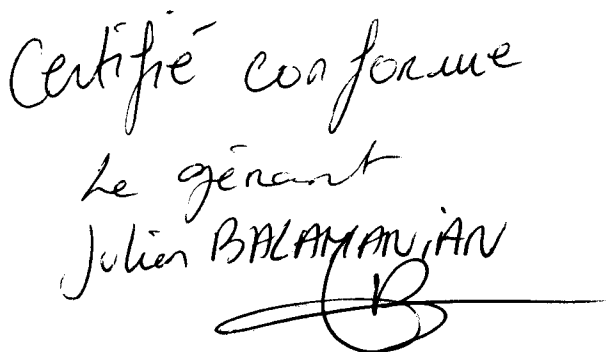 Certifié conforme
Le gérant
Julien BALAMANIAN